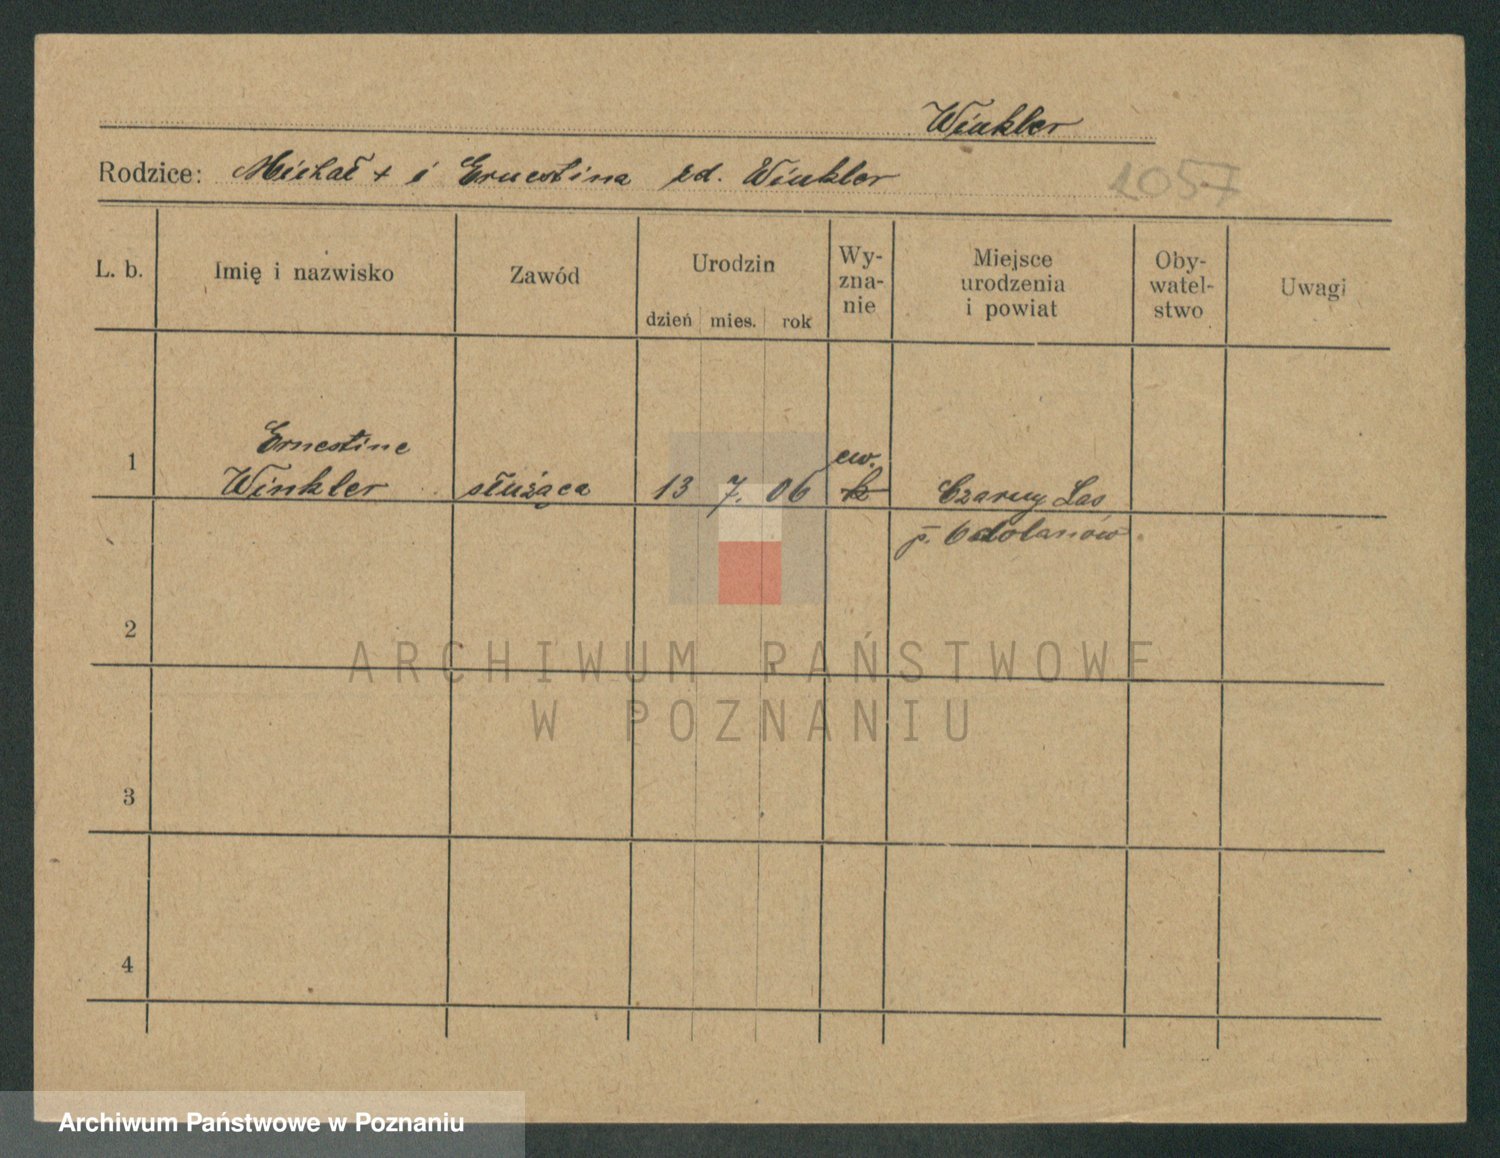 Winkler
Rodzice: Michał + i Ernestina zd. Winkler
2057
L. b. Imię i nazwisko Zawód Urodzin Wy-zna-nie Miejsce urodzenia i powiat Oby-watel-stwo Uwagi
dzień mies. rok
Ernestine
1 Winkler służąca 13 7. 06 ew. k Czarny Las
p. Odolanów
2
ARCHIWUM PAŃSTWOWE
W POZNANIU
3
4
Archiwum Państwowe w Poznaniu